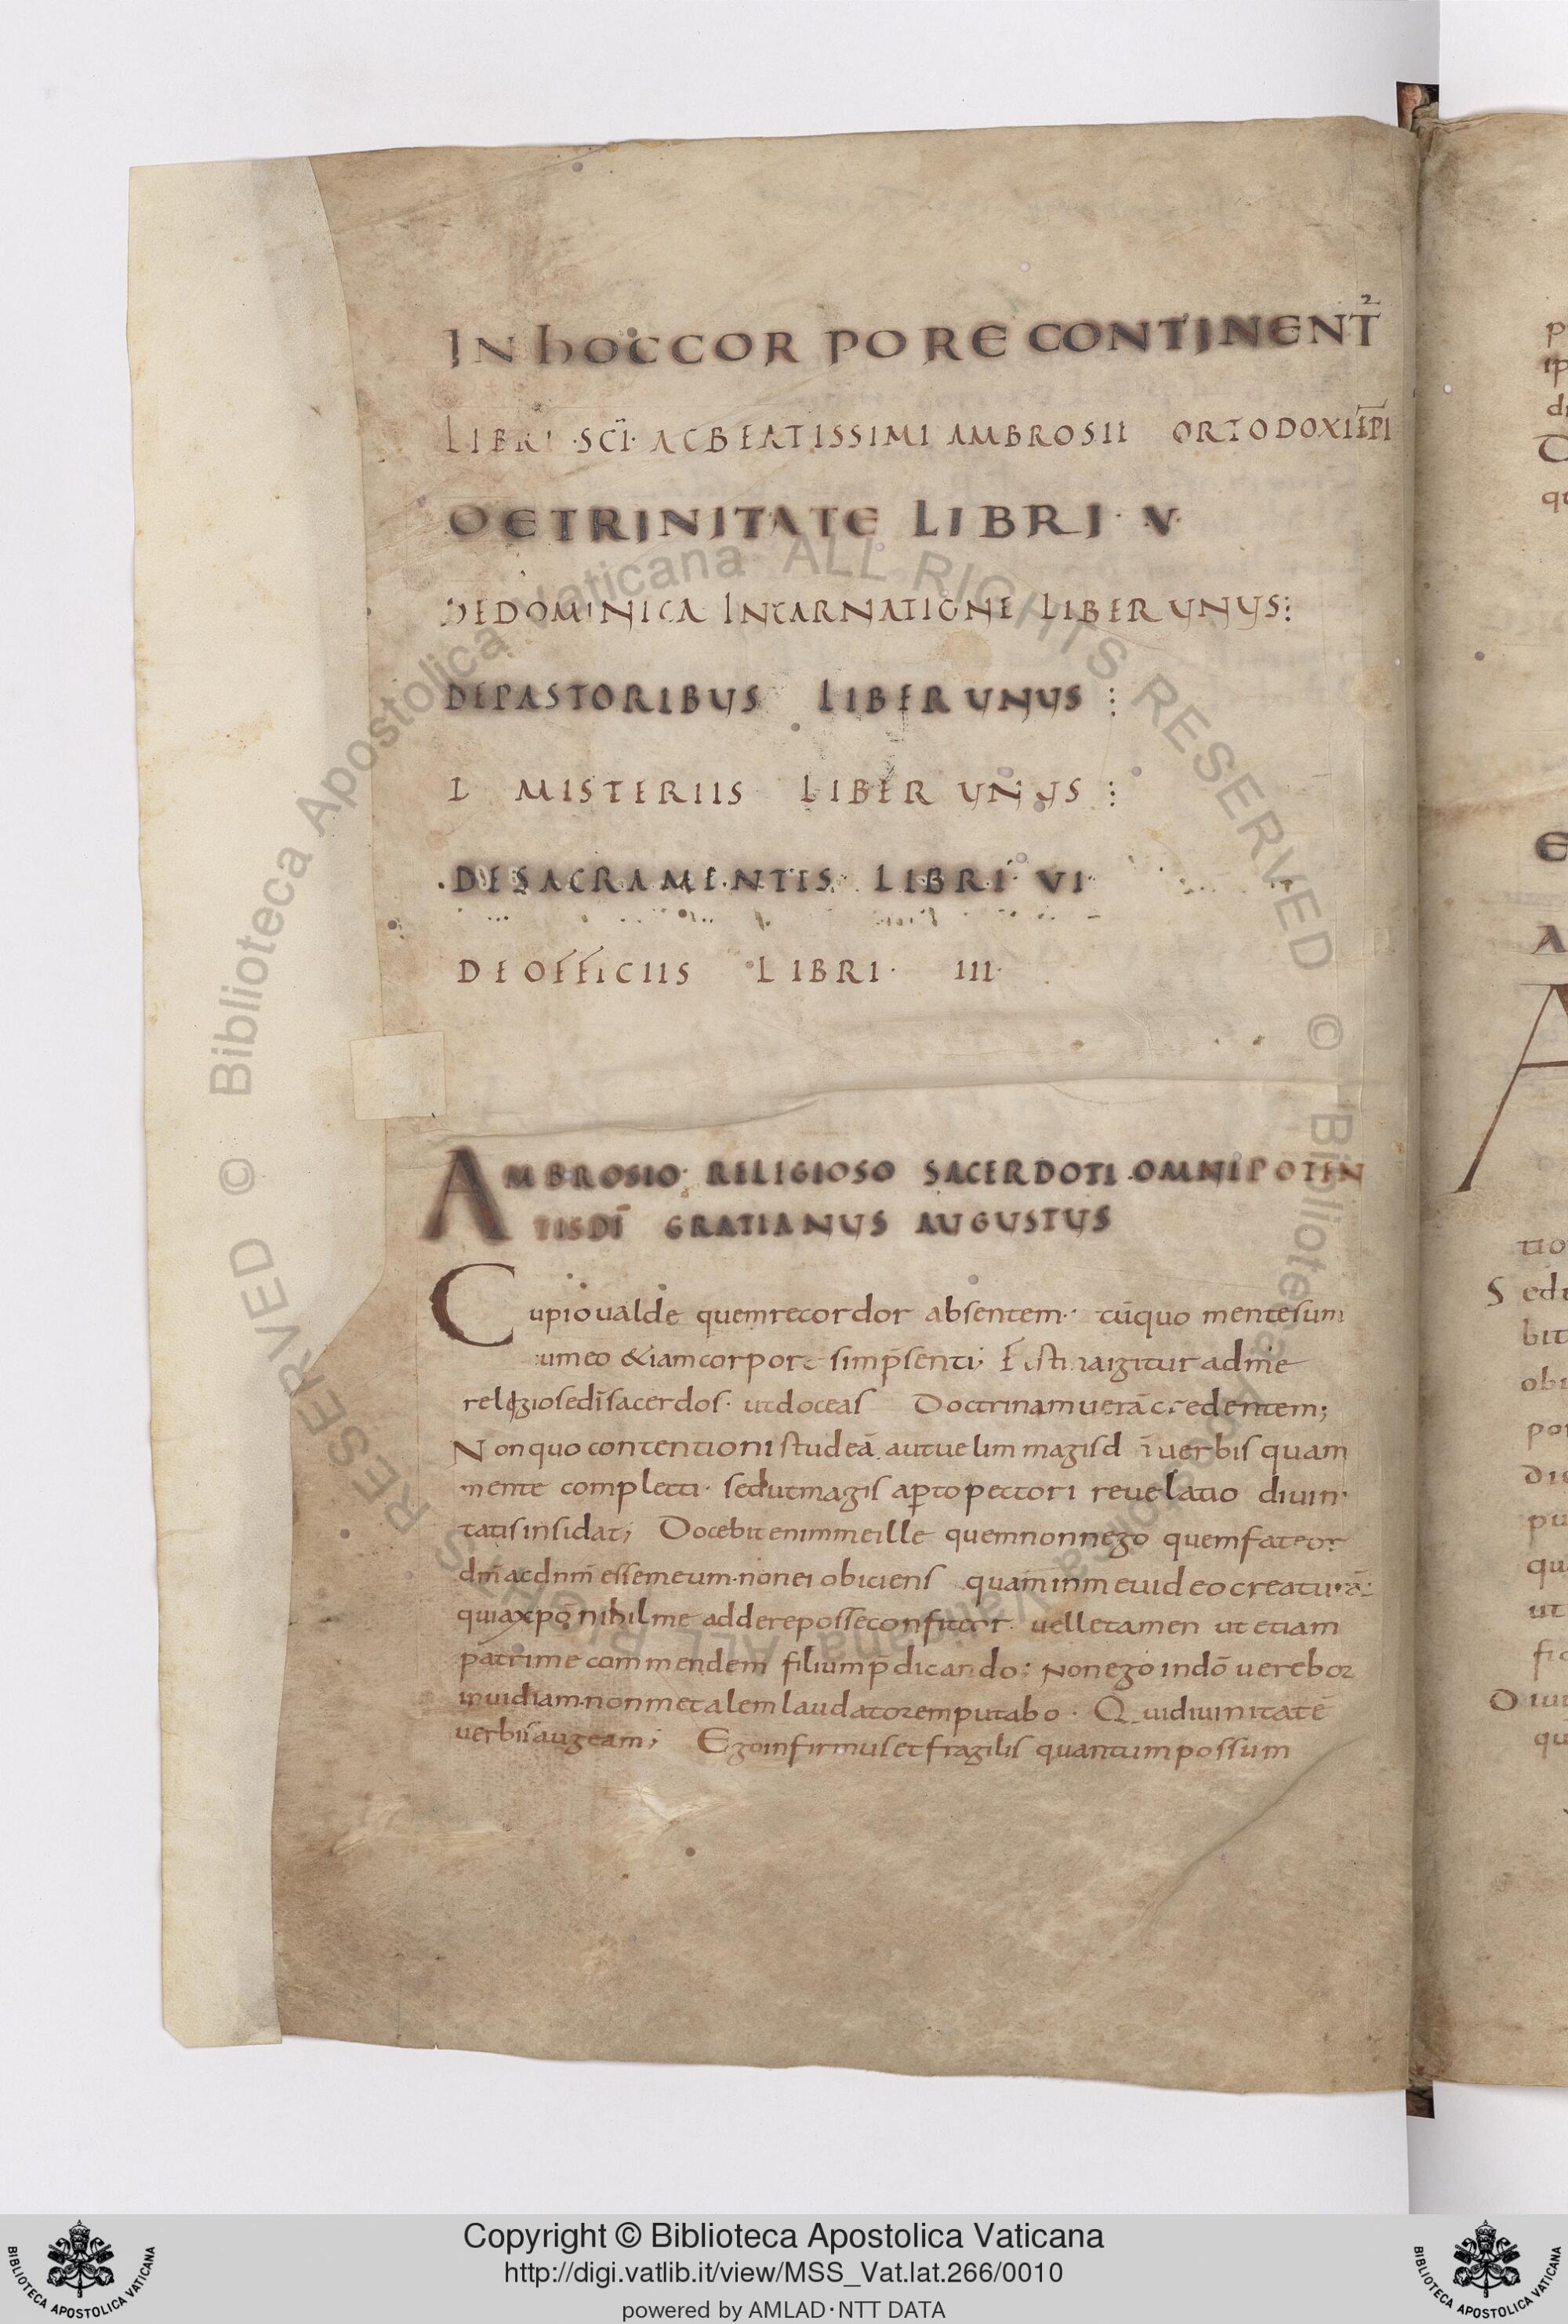 IN hOC CORPORE CONTINENT̄ 2
LIBRI SC̄I AC BEATISSIMI AMBROSII ORTODOXI EP̄I
DE TRINITATE LIBRI · V ·
DE DOMINICA INCARNATIONE LIBER UNUS:
DE PASTORIBUS LIBER UNUS :
MISTERIIS LIBER UNUS :
· DE SACRAMENTIS LIBRI · VI ·
DE OFFICIIS LIBRI · III ·
AMBROSIO RELIGIOSO SACERDOTI OMNIPOTEN
TIS DĪ GRATIANUS AUGUSTUS
Cupio ualde quem recordor absentem · cū quo mente sum
cum eo & iam corpore sim p̄senti; Festina igitur ad me
religiose dī sacerdos · ut doceas Doctrinam uerā credentem;
Non quo contentioni studeā aut uelim magis dm̄ uerbis quam
mente complecti · sed ut magis aperto pectori reuelatio diuini
tatis insidat; Docebit enim me ille quem non nego quem fateor
dm̄ ac dnm̄ esse meum · non ei obiciens quam in me uideo creaturā:
quia xpō nihil me addere posse confiteor · uelle tamen ut etiam
patri me commendem filium p̄dicando: Non ego in dō uerebor
inuidiam · non me talem laudatorem putabo · Qui diuinitatē
uerbis augeam; Ego infirmus et fragilis quantum possum
© Biblioteca Apostolica Vaticana ALL RIGHTS RESERVED
© Biblioteca Apostolica Vaticana ALL RIGHTS RESERVED
Copyright © Biblioteca Apostolica Vaticana
http://digi.vatlib.it/view/MSS_Vat.lat.266/0010
powered by AMLAD·NTT DATA
BIBLIOTECA APOSTOLICA VATICANA
BIBLIOTECA APOSTOLICA VATICANA